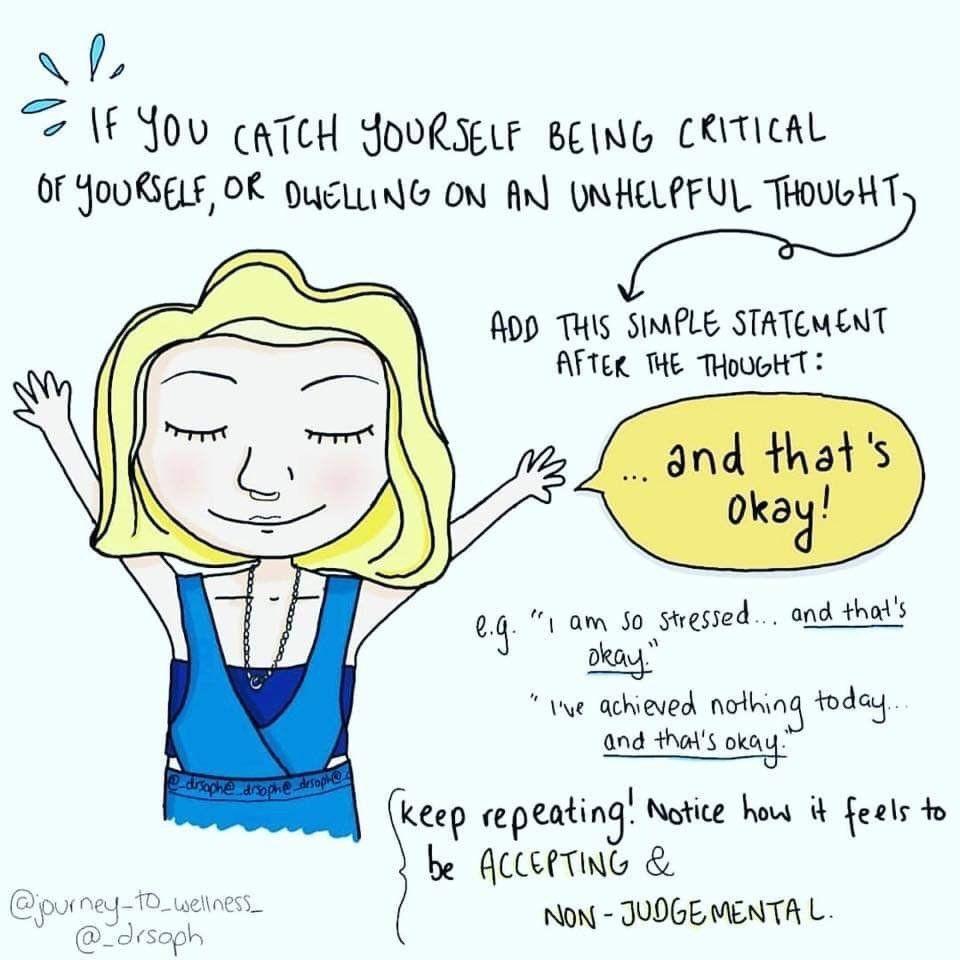 IF YOU CATCH YOURSELF BEING CRITICAL
OF YOURSELF, OR DWELLING ON AN UNHELPFUL THOUGHT,
ADD THIS SIMPLE STATEMENT
AFTER THE THOUGHT:
... and that's
okay!
e.g. "I am so stressed... and that's
okay."
"I've achieved nothing today...
and that's okay."
keep repeating! Notice how it feels to
be ACCEPTING &
NON-JUDGEMENTAL.
@_drsoph@_drsoph@_drsoph@
@journey_to_wellness_
@_drsoph